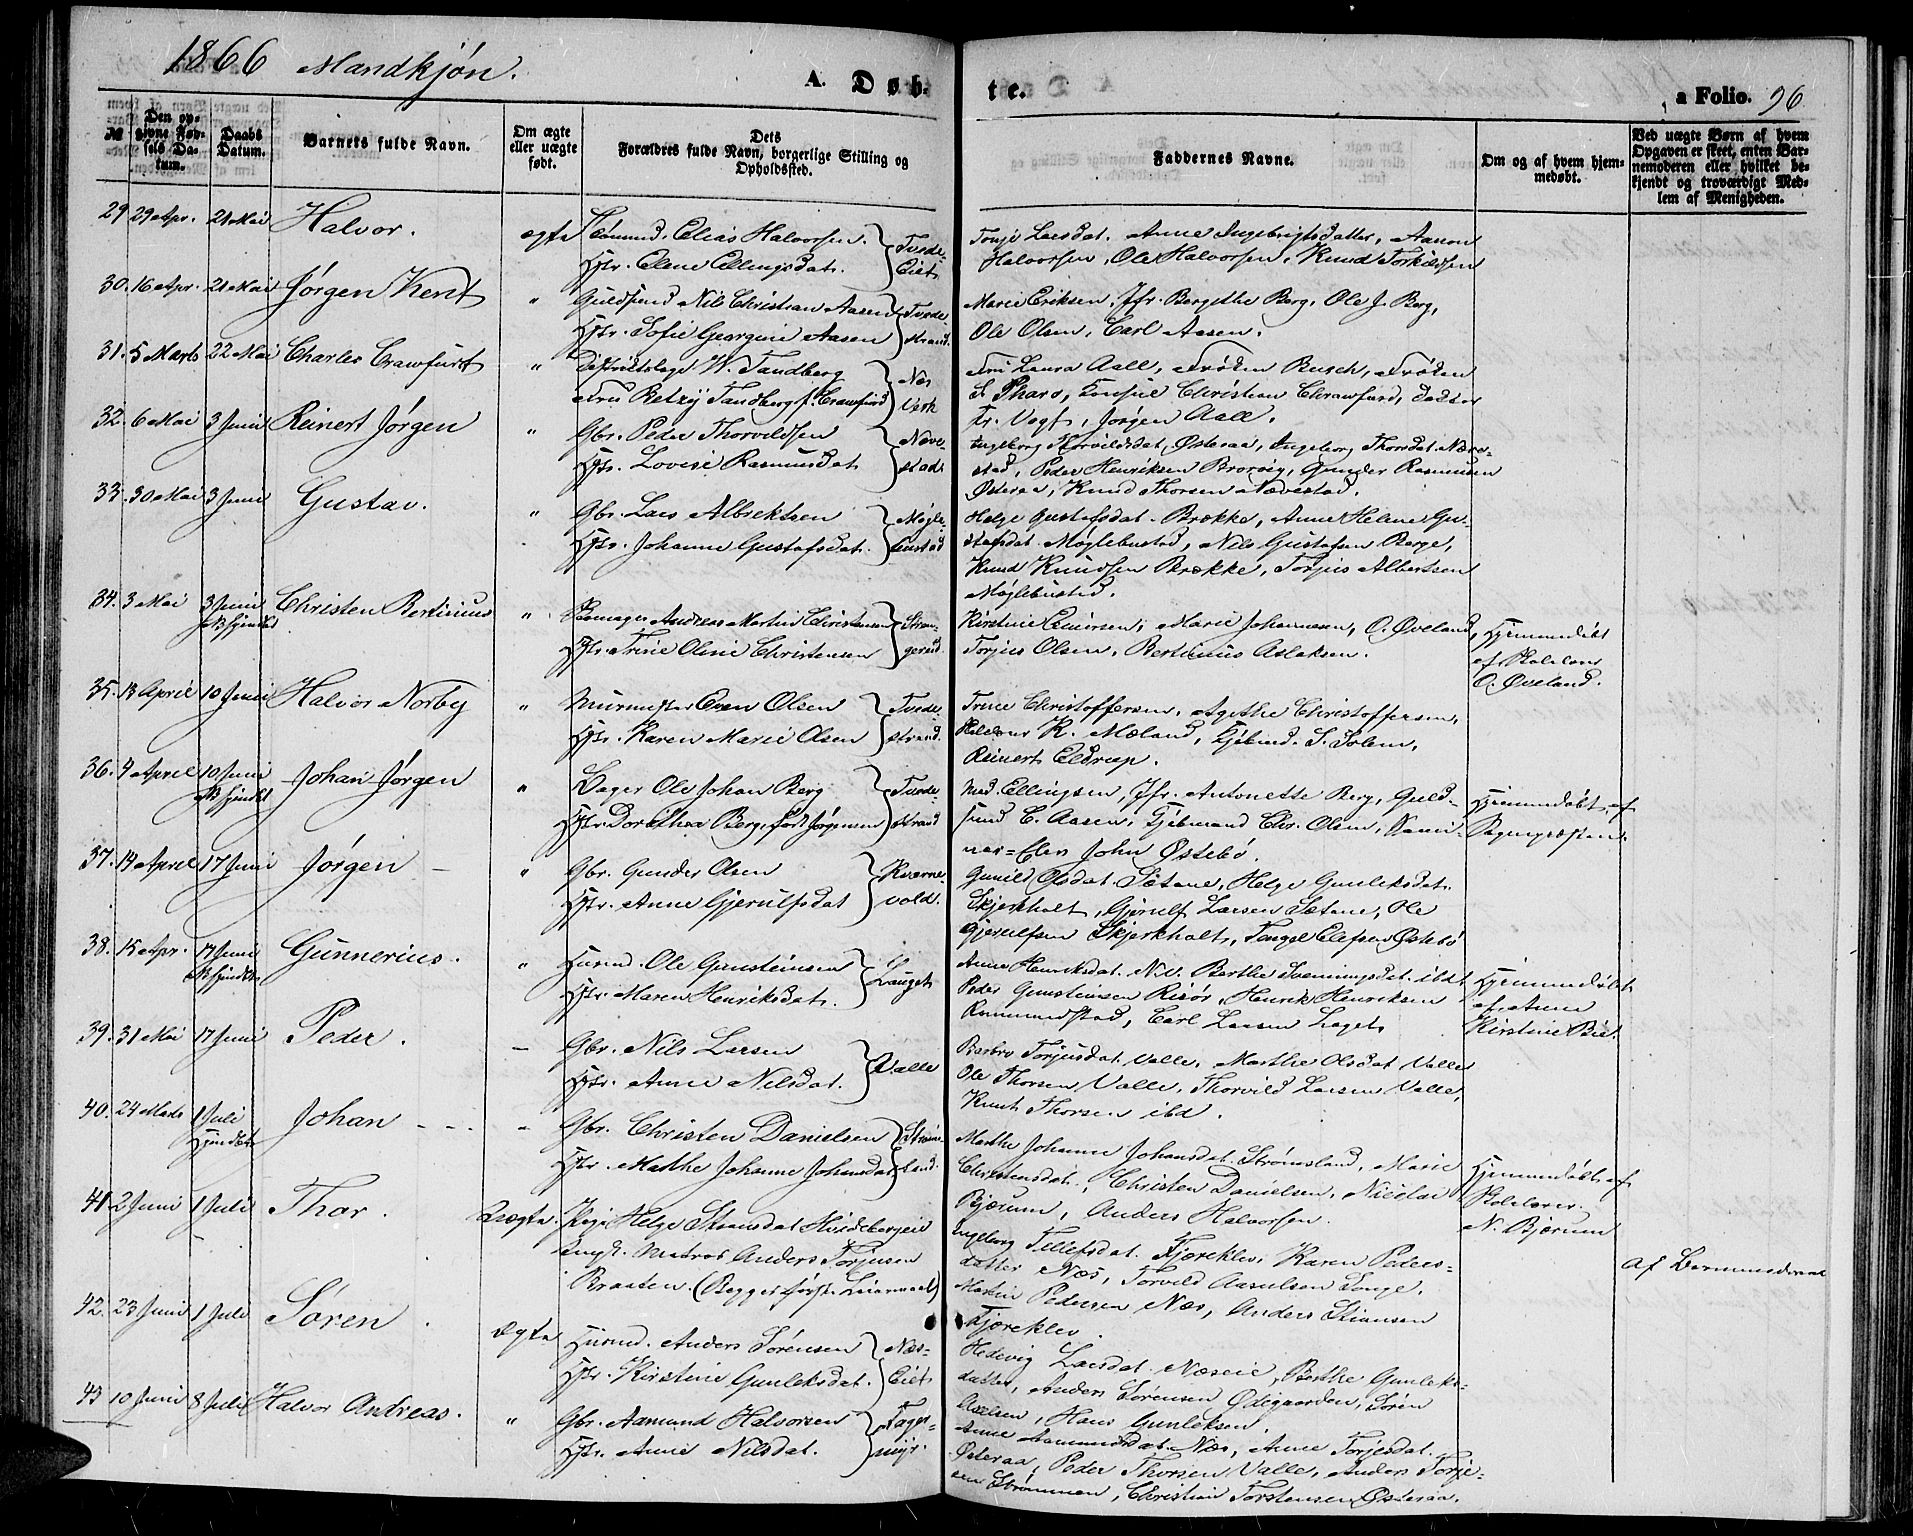 1866 Mandkjøn.
A. Døb-
te.
a Folio. 96
No
Den op-
givne Fød-
sels Da-
tum.
Daabs
Datum.
Barnets fulde Navn.
Om ægte
eller uægte
født.
Dets
Forældres fulde Navn, borgerlige Stilling og
Opholdssted.
Faddernes Navne.
Om og af hvem hjem-
medøbt.
Ved uægte Børn af hvem
Opgaven er skeet, enten Bar-
nemoderen eller hvilket be-
kjendt og troværdigt Med-
lem af Menigheden.
29 29 Apr. 21 Mai Halvor. ægte Tømmd. Elias Halvorsen. Tvede-
Hstr. Elene Ellingsdat. Eiet
Tonje Larsdat. Anne Ingebrigtsdatter, Aanon
Halvorsen, Ole Halvorsen, Knud Torkildsen
30. 16 Apr. 21 Mai Jørgen Kent " Guldsmd Nils Christian Aasen Tvede-
Hstr. Sofie Georgine Aasen strand.
Marie Eriksen, Jfr. Bergithe Berg, Ole J. Berg,
Ole Olsen, Carl Aasen.
31. 5 Marts 22 Mai Charles Crawfurt " Distriktslæge W. Sandberg Næs
Fru Betzy Sandberg f. Crawfurd Verk
Fru Laura Aall, Frøken Busch, Frøken
S. Pharo, Konsul Christian Chrawfurd, Doktor
Fr. Vogt, Jørgen Aall.
32. 6 Mai 3 Juni Reinert Jørgen " Gbr. Peder Thorvildsen Næve-
Hstr. Lovise Rasmusdat. stad.
Ingeborg Thorvildsdat. Østeraa, Ingeborg Thorsdat. Næve-
stad, Peder Henriksen Brorvig, Gunder Rasmusen
Østeraa, Knud Thorsen Nævestad.
33. 30 Mai 3 Juni Gustav. " Gbr. Lars Albrektsen Møgle-
Hstr. Johanne Gustafsdat. bustad
Helge Gustafsdat. Brække, Anne Helene Gu-
stafsdat. Møglebustad, Nils Gustafsen Berge,
Knud Knudsen Brække, Torjus Albertsen
Møglebustad.
34. 3 Mai 3 Juni Christen Bertinius " Andreas Martin Christensen Stran-
Hstr. Trine Oline Christensen gerød.
Kirstine Einersen, Marie Johannesen, O. Øveland,
Torjus Olsen, Bertinius Aslaksen.
Hjemmedøbt
af Skolelærer
O. Øveland.
35. 13 April 10 Juni Halvor Norby " Murmester Even Olsen Tvede-
Hstr. Karen Marie Olsen strand.
Trine Christoffersen, Agethe Christoffersen,
Skolelærer K. Mæland, Kjøbmd. S. Solem,
Reinert Eldrup.
36. 4 April 10 Juni Johan Jørgen " Bager Ole Johan Berg Tvede-
Hstr. Dorothea Berg, født Jørgensen strand
Mad. Ellingsen, Jfr. Antonette Berg, Guld-
smd C. Aasen, Kjøbmand Chr. Olsen, Semi-
nar-Elev John Østebø.
Hjemmedøbt af
Sognepræsten.
37. 14 April 17 Juni Jørgen - " Gbr. Gunder Olsen Kværne-
Hstr. Anne Gjerulfsdat. vold.
Gunild Olsdat. Sætane, Helge Gunleksdat.
Skjerkholt, Gjerulf Larsen Sætane, Ole
Gjerulfsen Skjerkholt, Tengel Elefsen Østebø
38. 15 Apr. 17 Juni Gunnerius. " Husmd. Ole Gunsteinsen Lauget
Hstr. Maren Henriksdat.
Anne Henriksdat. Berthe Svenningsdat. ibid
Peder Gunsteinsen Risør, Henrik Henriksen
Rammundstad, Carl Larsen Laget
Hjemmedøbt
af Anne
Kirstine Bie.
39. 31 Mai 17 Juni Peder. - Gbr. Nils Larsen Valle
Hstr. Anne Nilsdat.
Barbro Torjusdat. Valle, Marthe Olsdat Valle
Ole Thorsen Valle, Thorvild Larsen Valle,
Knut Thorsen ibd.
40. 24 Marts 1 Juli Johan - - - - Gbr. Christen Danielsen Strøms-
Hstr. Mathe Johanne Johansdat land.
Marthe Johanne Johansdat. Strømsland, Marie
Christensdat., Christen Danielsen, Nicolai
Bjærum, Anders Halvorsen.
Hjemmedøbt af
Skolelærer
N. Bjærum
41. 2 Juni 1 Juli Thor. Uægte. Pige Helge Steansdat.
Ungk. Matros Anders Torjusen
Braaten. (Begges første Leiermaal)
Ingeborg Tellefsdat. Fjæreklev, Karen Peders-
datter Næs, Torvild Aanulsen Songe,
Martin Pedersen Næs, Anders Stiansen
Fjæreklev.
af Barnemoderen
42. 23 Juni 1 Juli Søren. Ægte. Husmd. Anders Sørensen Næs-
Hstr. Kirstine Gunleksdat. Eiet
Hedevig Larsdat. Næseie, Berthe Gunleks-
datter, Anders Sørensen Ødegaarden, Søren
Axelsen, Hans Gunleksen.
43 10 Juni 8 Juli Halvor Andreas. " Gbr. Aamund Halvorsen Fager-
Hstr. Anne Nilsdat. myr.
Anne Aamundsdat. Næs, Anne Torjesdat.
Østeraa, Peder Thorsen Valle, Anders Torje-
sen Strømmen, Christian Torstensen Østeraa.